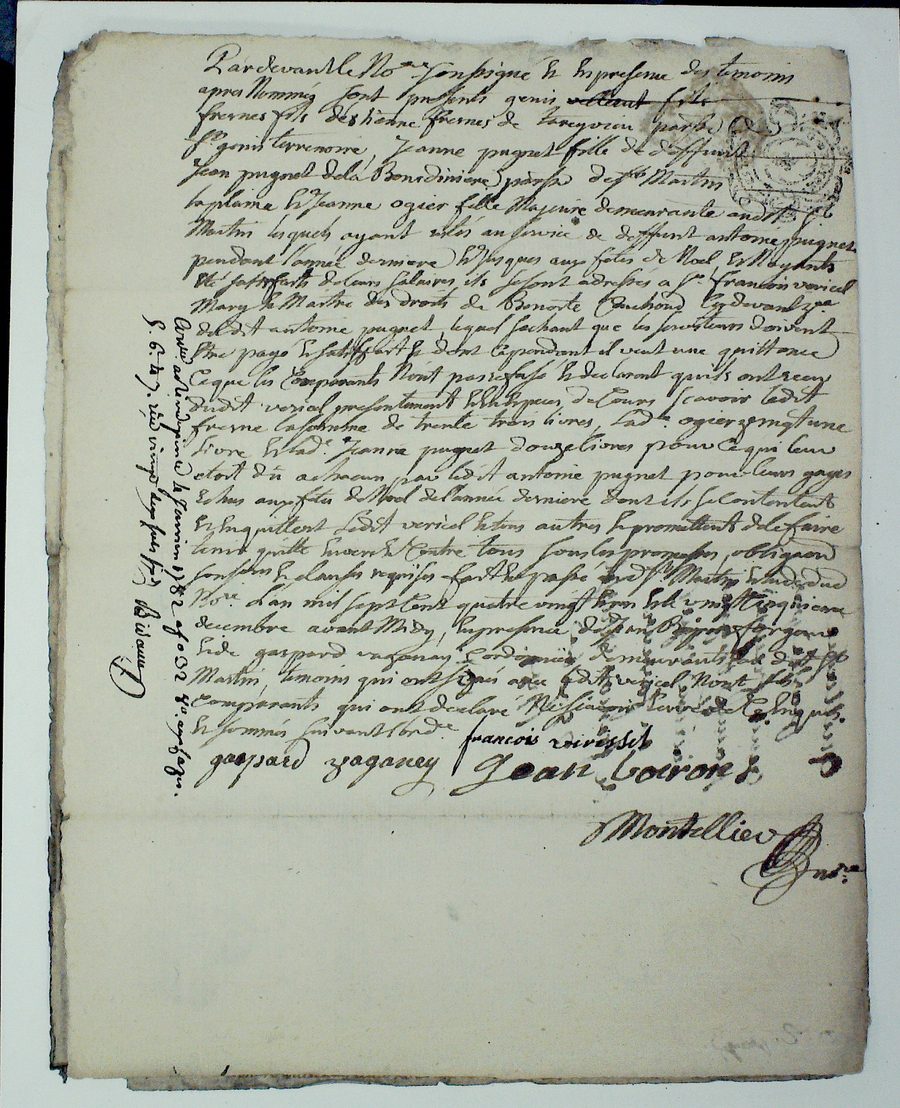 Pardevant le No.re soussigné et En presence des temoins
apres Nommés sont presents genis
fresnes fils d'estienne fresnes de paroisse de
St. genis terrenoire, Jeanne puguet fille de deffunt
Jean puguet de la Bensdiniere, paroisse de St. Martin
la plaine Et Jeanne ogier fille Majeure demeurante audit St.
Martin lesquels ayant étés au service de deffunt antoine puguet
pendant l'année derniere Et jusques aux fêtes de Noel Et N'ayants
été satisfaits de leurs salaires, ils se sont adressés a Sr. francois vericel
Mary Et Maitre des droits de Benoite Cy devant
dudit antoine puguet lequel sachant que les serviteurs doivent
Etre payé Et satisfait Et dont Cependant il veut une quittance
Ce que les Comparants N'ont pas refusé Et declarent qu'ils ont recu
dudit vericel presentement En Especes de Cours scavoir ledit
fresne la somme de trente trois livres, lad.e ogier vingt une
livre Et lad.e Jeanne puguet douze livres pour Ce qui leur
etoit dû a chacun par ledit antoine puguet pour leurs gages
Echus aux fêtes de Noel de l'année derniere dont ils se Contentent
Et En quittent ledit vericel Et tous autres Et promettent de le faire
tenir quitte Envers Et Contre tous sous les promesses, obligaon
Et clauses requises fait Et passé aud. St. Martin Etude dud.
No.re L'an mil sept Cent quatre vingt Un Et le vingt Cinquieme
decembre avant Midy, En presence de Jean
Et de gaspard vaganay Cordonnier demeurants aud. St.
Martin, temoins qui ont signé avec ledit vericel Non les
Comparants qui ont declaré Ne sçavoir Ecrire de Ce Enquis
Et sommés suivant l'ord.ce
francois veressel
gaspard vaganey Jean boiron
Montellier
no.re
Con.lé a le de Janvier 1782 a fo 32
R. six vingt sept sols six d. Bidaud